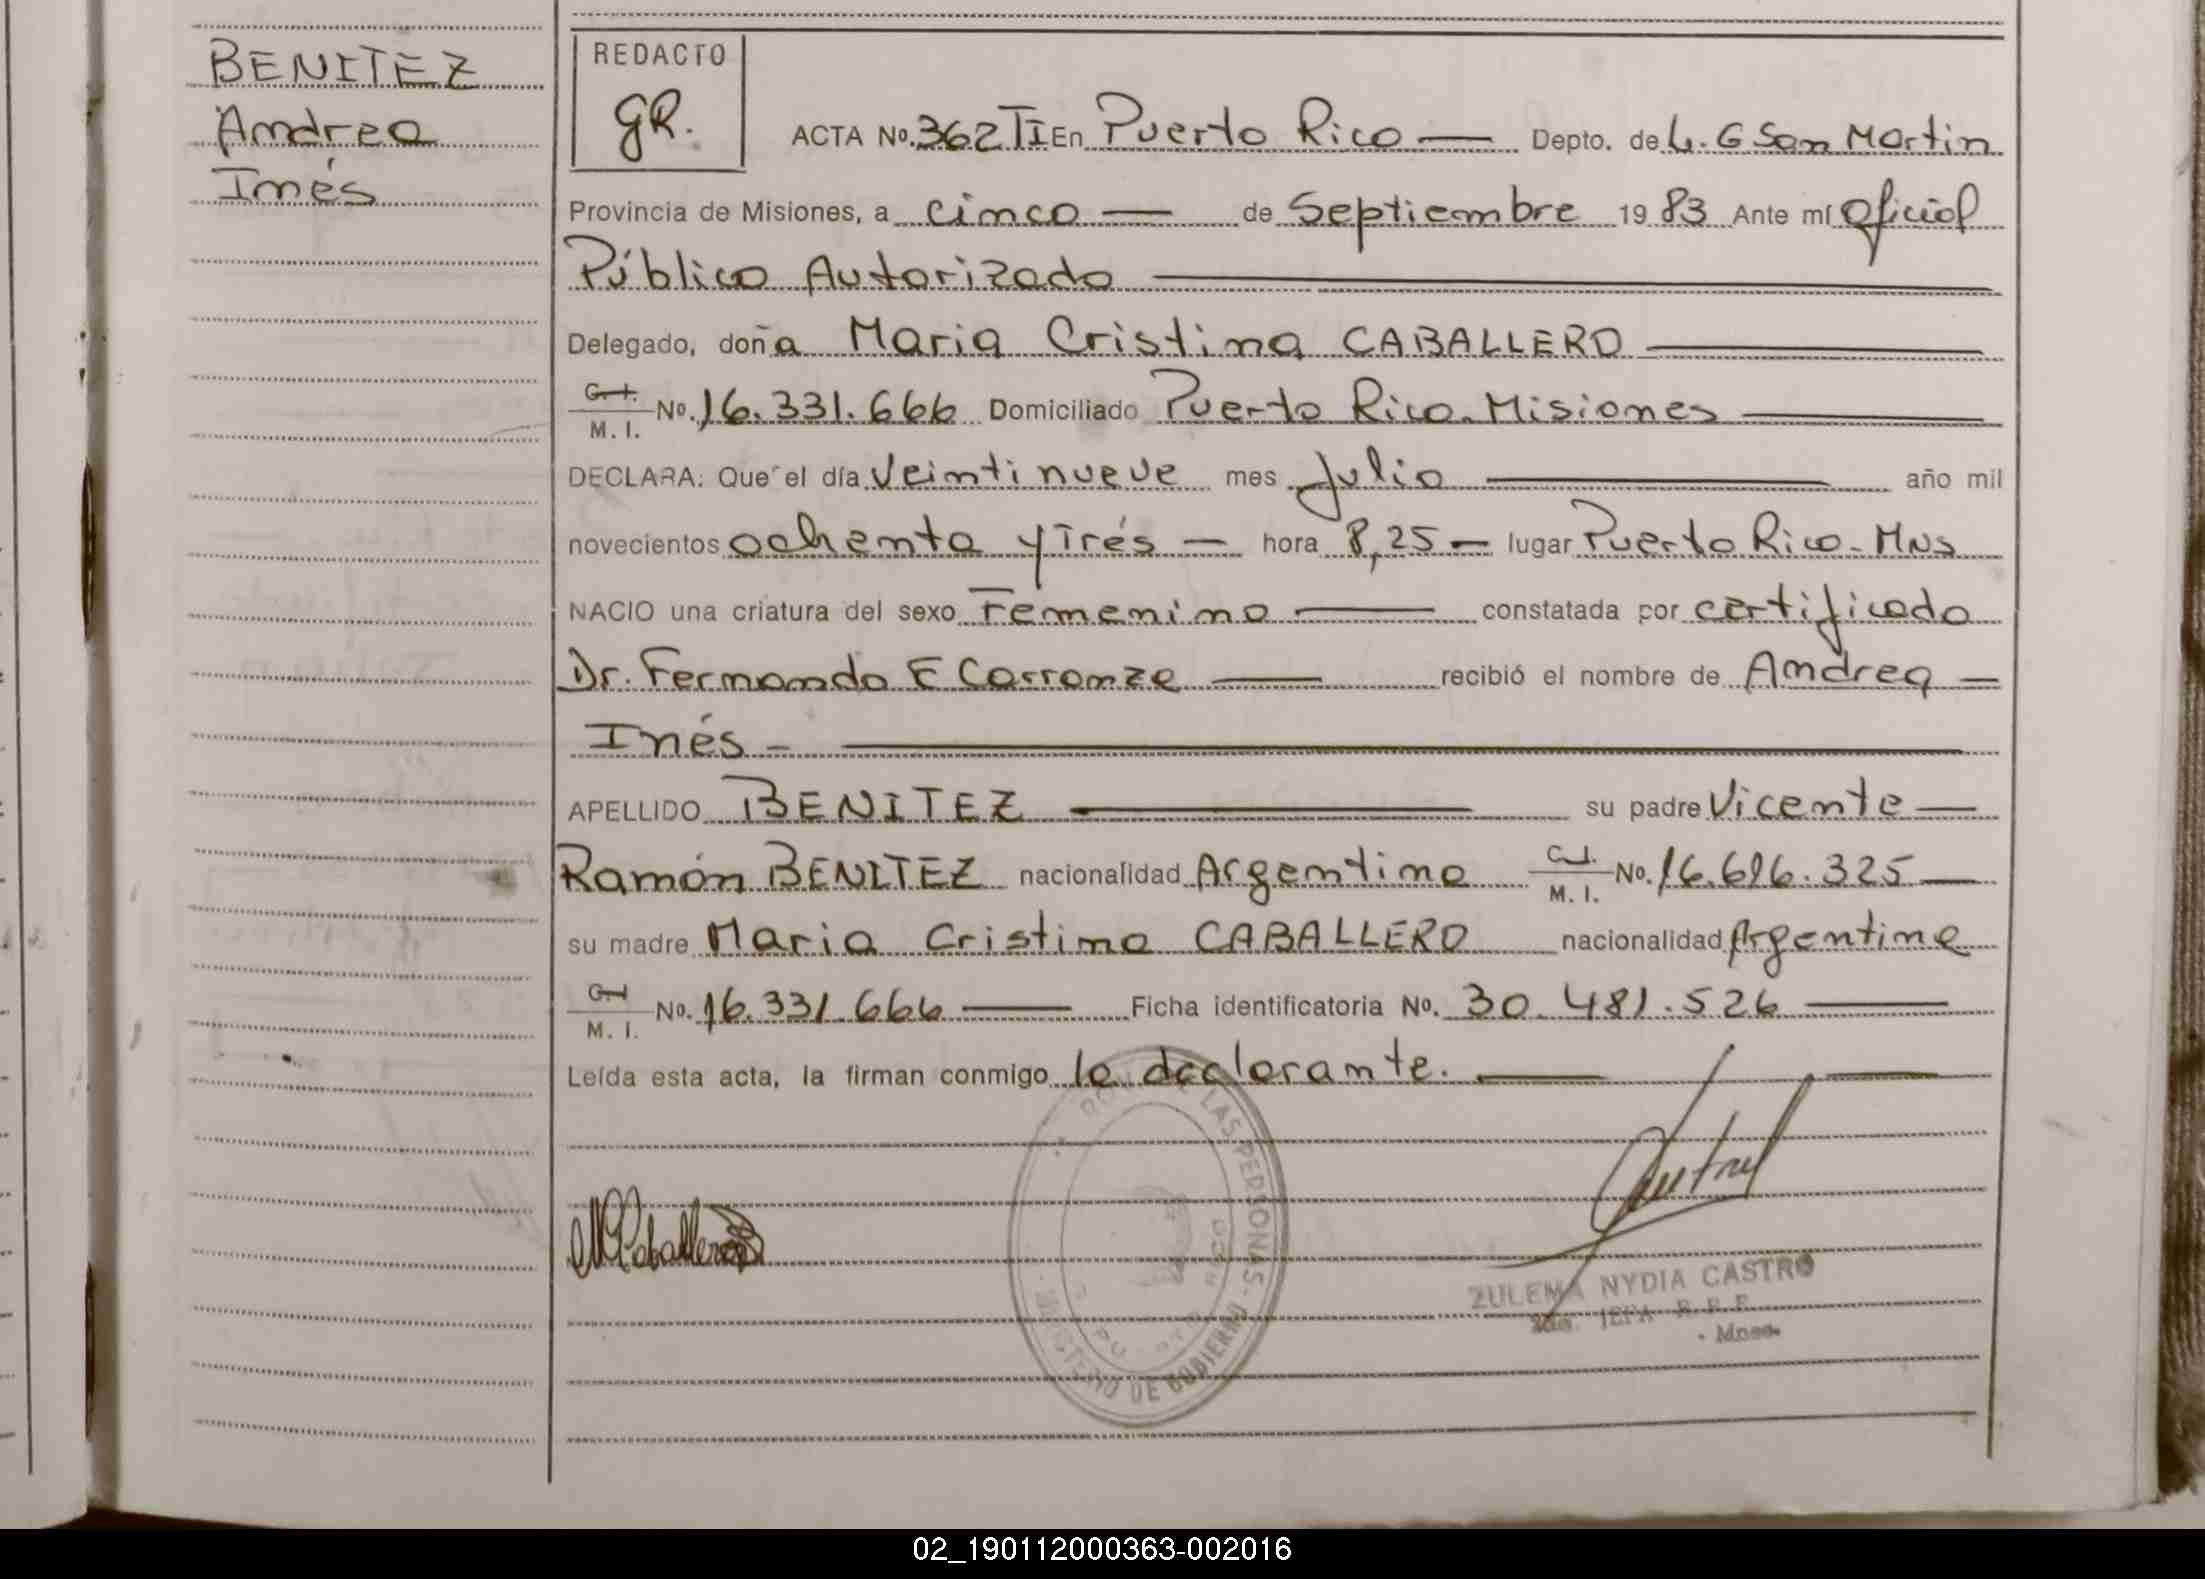 BENITEZ
Andrea
Inés
REDACTO
GR.
ACTA No. 362 TI En Puerto Rico — Depto. de L. G San Martin
Provincia de Misiones, a cinco — de Septiembre 1983 Ante mí Oficial
Público Autorizado
Delegado, doña Maria Cristina CABALLERO
C. I. M. I. No. 16.331.666 Domiciliado Puerto Rico. Misiones
DECLARA: Que el día veintinueve mes Julio año mil
novecientos ochenta y Trés — hora 8,25 — lugar Puerto Rico - Mns
NACIO una criatura del sexo Femenino constatada por certificado
Dr. Fernando E Carranza recibió el nombre de Andrea —
Inés -
APELLIDO BENITEZ su padre Vicente —
Ramón BENITEZ nacionalidad Argentina C. I. M. I. No. 16.696.325
su madre Maria Cristina CABALLERO nacionalidad Argentina
C. I. M. I. No. 16.331.666 Ficha identificatoria No. 30.481.526
Leída esta acta, la firman conmigo la declarante.
MCCaballero
LAS PERSONAS - MINISTERIO DE GOBIERNO
ZULEMA NYDIA CASTRO
JEFA
02_190112000363-002016